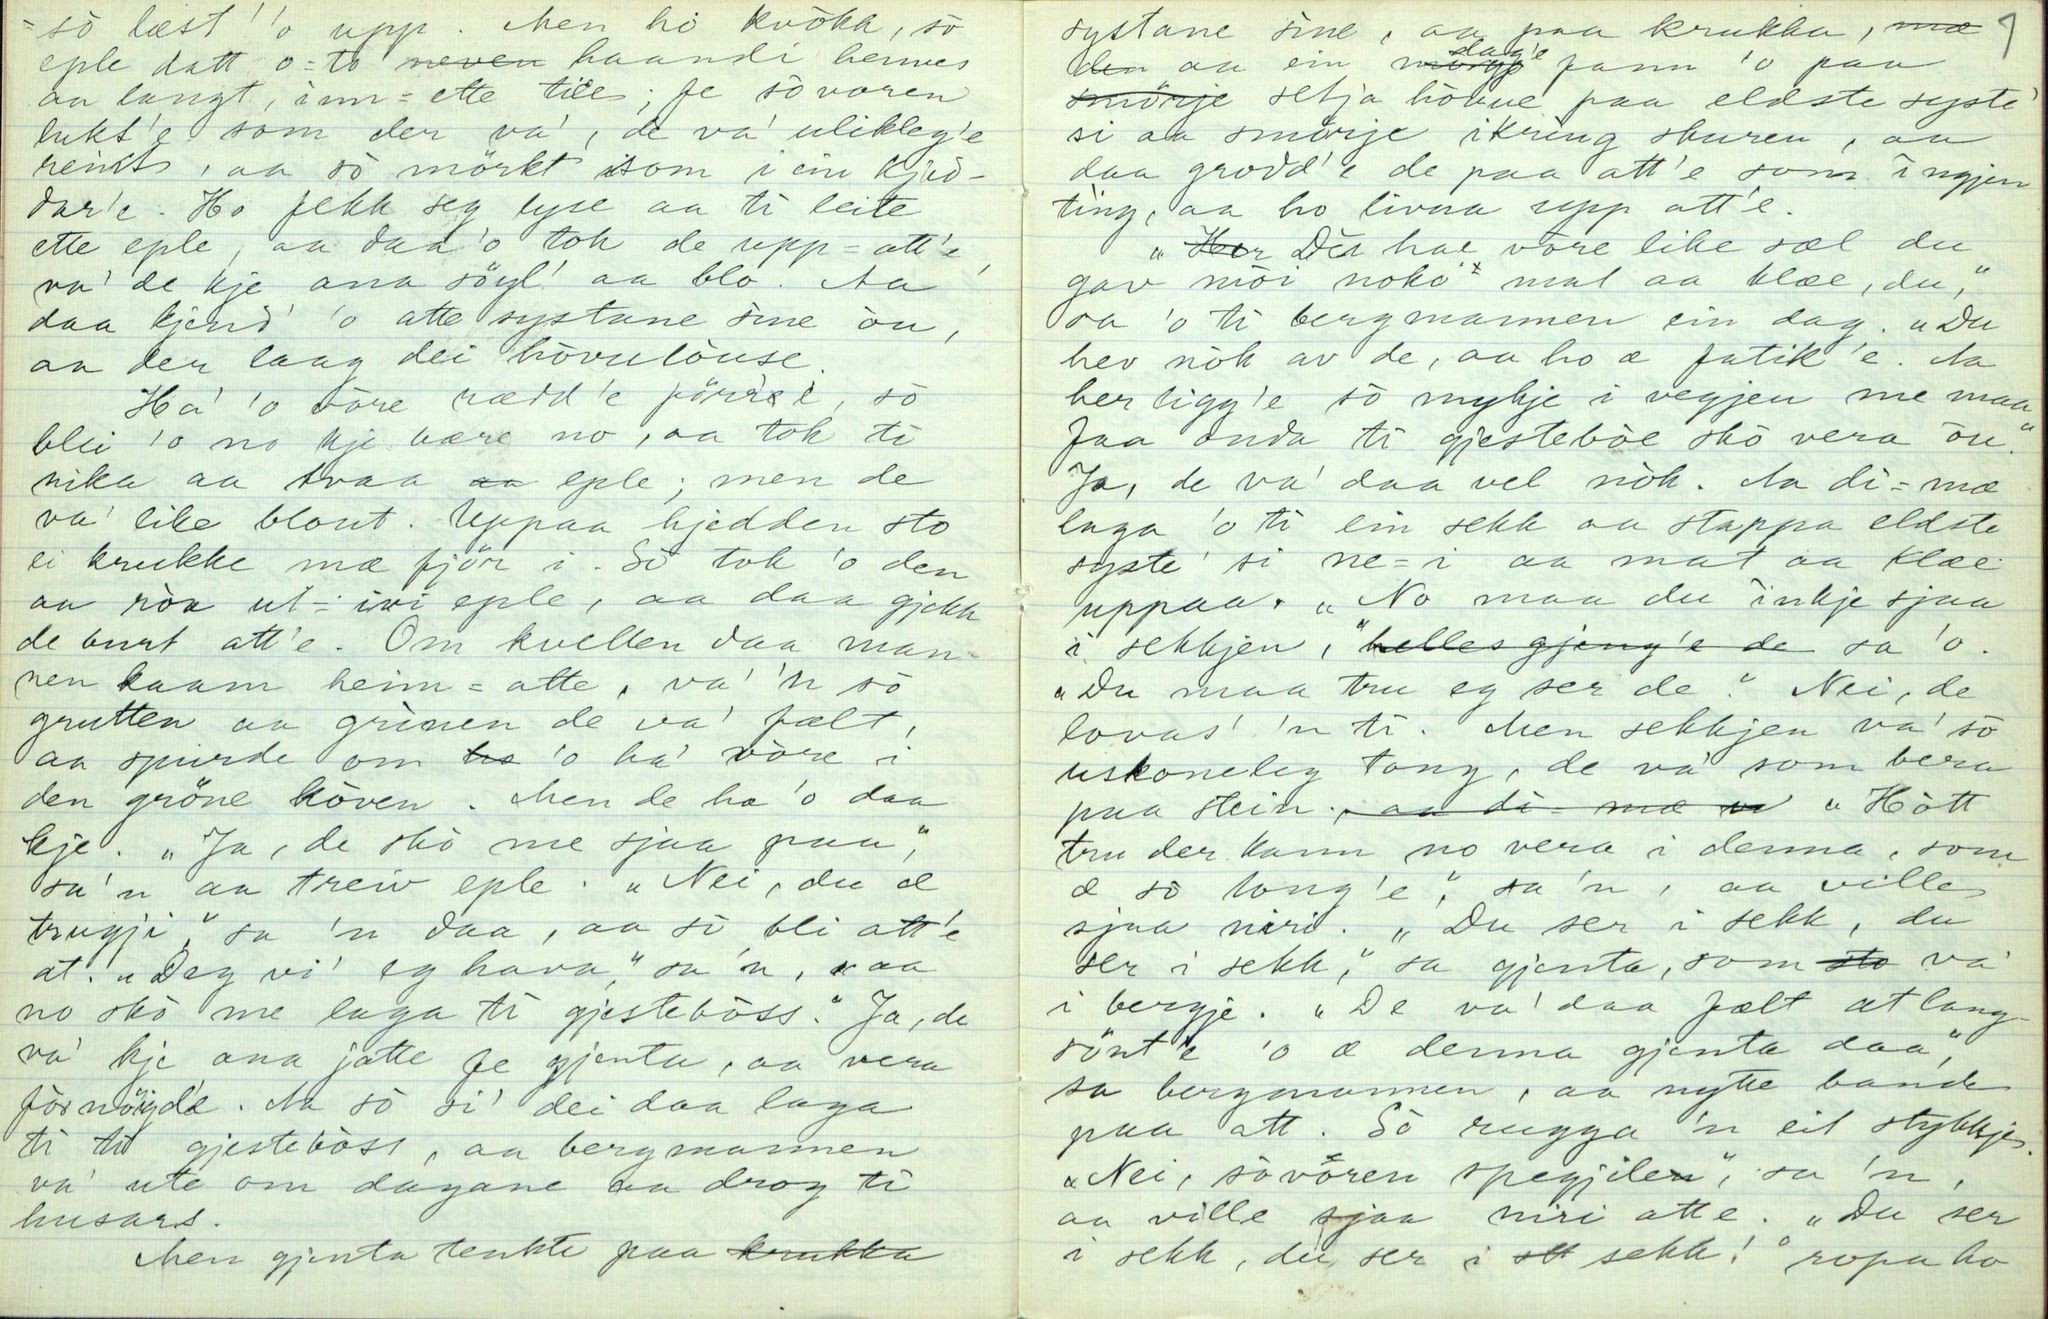 =sò læst' 'o upp. Men hò kvòkk, sò
eple datt o=to neven haandi hennes
aa langt, inn=ette tile; fe sòvoren
lukt'e som der va', de va' ulikleg'e
reint, aa sò mörkt isom i ein kjæd-
dar'e. Ho fekk seg lyse aa ti leite
ette eple, aa daa 'o tok de upp=att'e,
va' de kje ana söyl' aa blo. Aa
daa kjend' 'o atte systane sine òu,
aa der laag dei hòvulòuse.
Ha' 'o vòre rædd'eförre, sò
blei 'o no kje bære no, aa tok ti
nika aa tvaa aa eple; men de
va' like blout. Uppaa hjedden sto
ei krukke mæ fjör i. Sò tok 'o den
aa ròa ut=ivi eple, aa daa gjekk
de burt att'e. Om kvellen daa man-
nen kaam heim=atte, va' 'n sò
grutten aa grinen de va' fælt,
aa spurde om ho 'o ha' vòre i
den gröne kòven. Men de ha 'o daa
kje. „Ja, de skò me sjaa paa,"
sa'n aa treiv eple. „Nei, du æ
trugji," sa 'n daa, aa sò bli att'e
at. „Deg vi' eg hava," sa'n, „aa
no skò me laga ti gjestebòss." Ja, de
va' kje ana jatte fe gjenta, aa vera
fòrnöygde. Aa sò si' dei daa laga
ti til gjestebòss, aa bergmannen
va' ute om dagane aa drog ti
husars.
Men gjenta tenkte paa krukka
systane sine, aa paa krukka, mæ
den aa ein morgo dag'e fann 'o paa
smörje setja hòvue paa eldste syste'
si aa smörje ikring skuren, aa
daa grodd'e de paa att'e som ingjen
ting, aa ho livna upp att'e.
„Hor Det hae vòre like sæl du
gav mòi nokò mat aa klæe, du,"
sa 'o ti bergmannen ein dag. „Du
hev nòk av de, aa ho æ fatik'e. Aa
her ligg'e sò mykje i vegjen me maa
faa onda ti gjestebòe skò vera òu."
Ja, de va' daa vel nòk. Aa di=mæ
laga 'o ti ein sekk aa stappa eldste
syste' si ne=i aa mat aa klæe
uppaa. „No maa du inkje sjaa
i sekkjen," helles gjeng'e de sa 'o.
„Du maa tru eg ser de." Nei, de
lovas' 'n ti. Men sekkjen va' sò
uskoneleg tong, de va' som bera
paa stein. aa di=mæ „Hòtt
tru der kann no vera i denna, som
æ sò tong'e," sa 'n, aa ville
sjaa niri. „Du ser i sekk, du
ser i sekk," sa gjenta, som sto va'
i bergje. „De va' daa fælt at lang-
sönt'e 'o æ denna gjenta daa",
sa bergmannen, aa nytte bande
paa att. Sò rugga 'n eit stykkje.
„Nei, sòvòren spegjilen", sa 'n,
aa ville sjaa niri atte. „Du ser
i sekk, du ser i sekk!" ropa ho